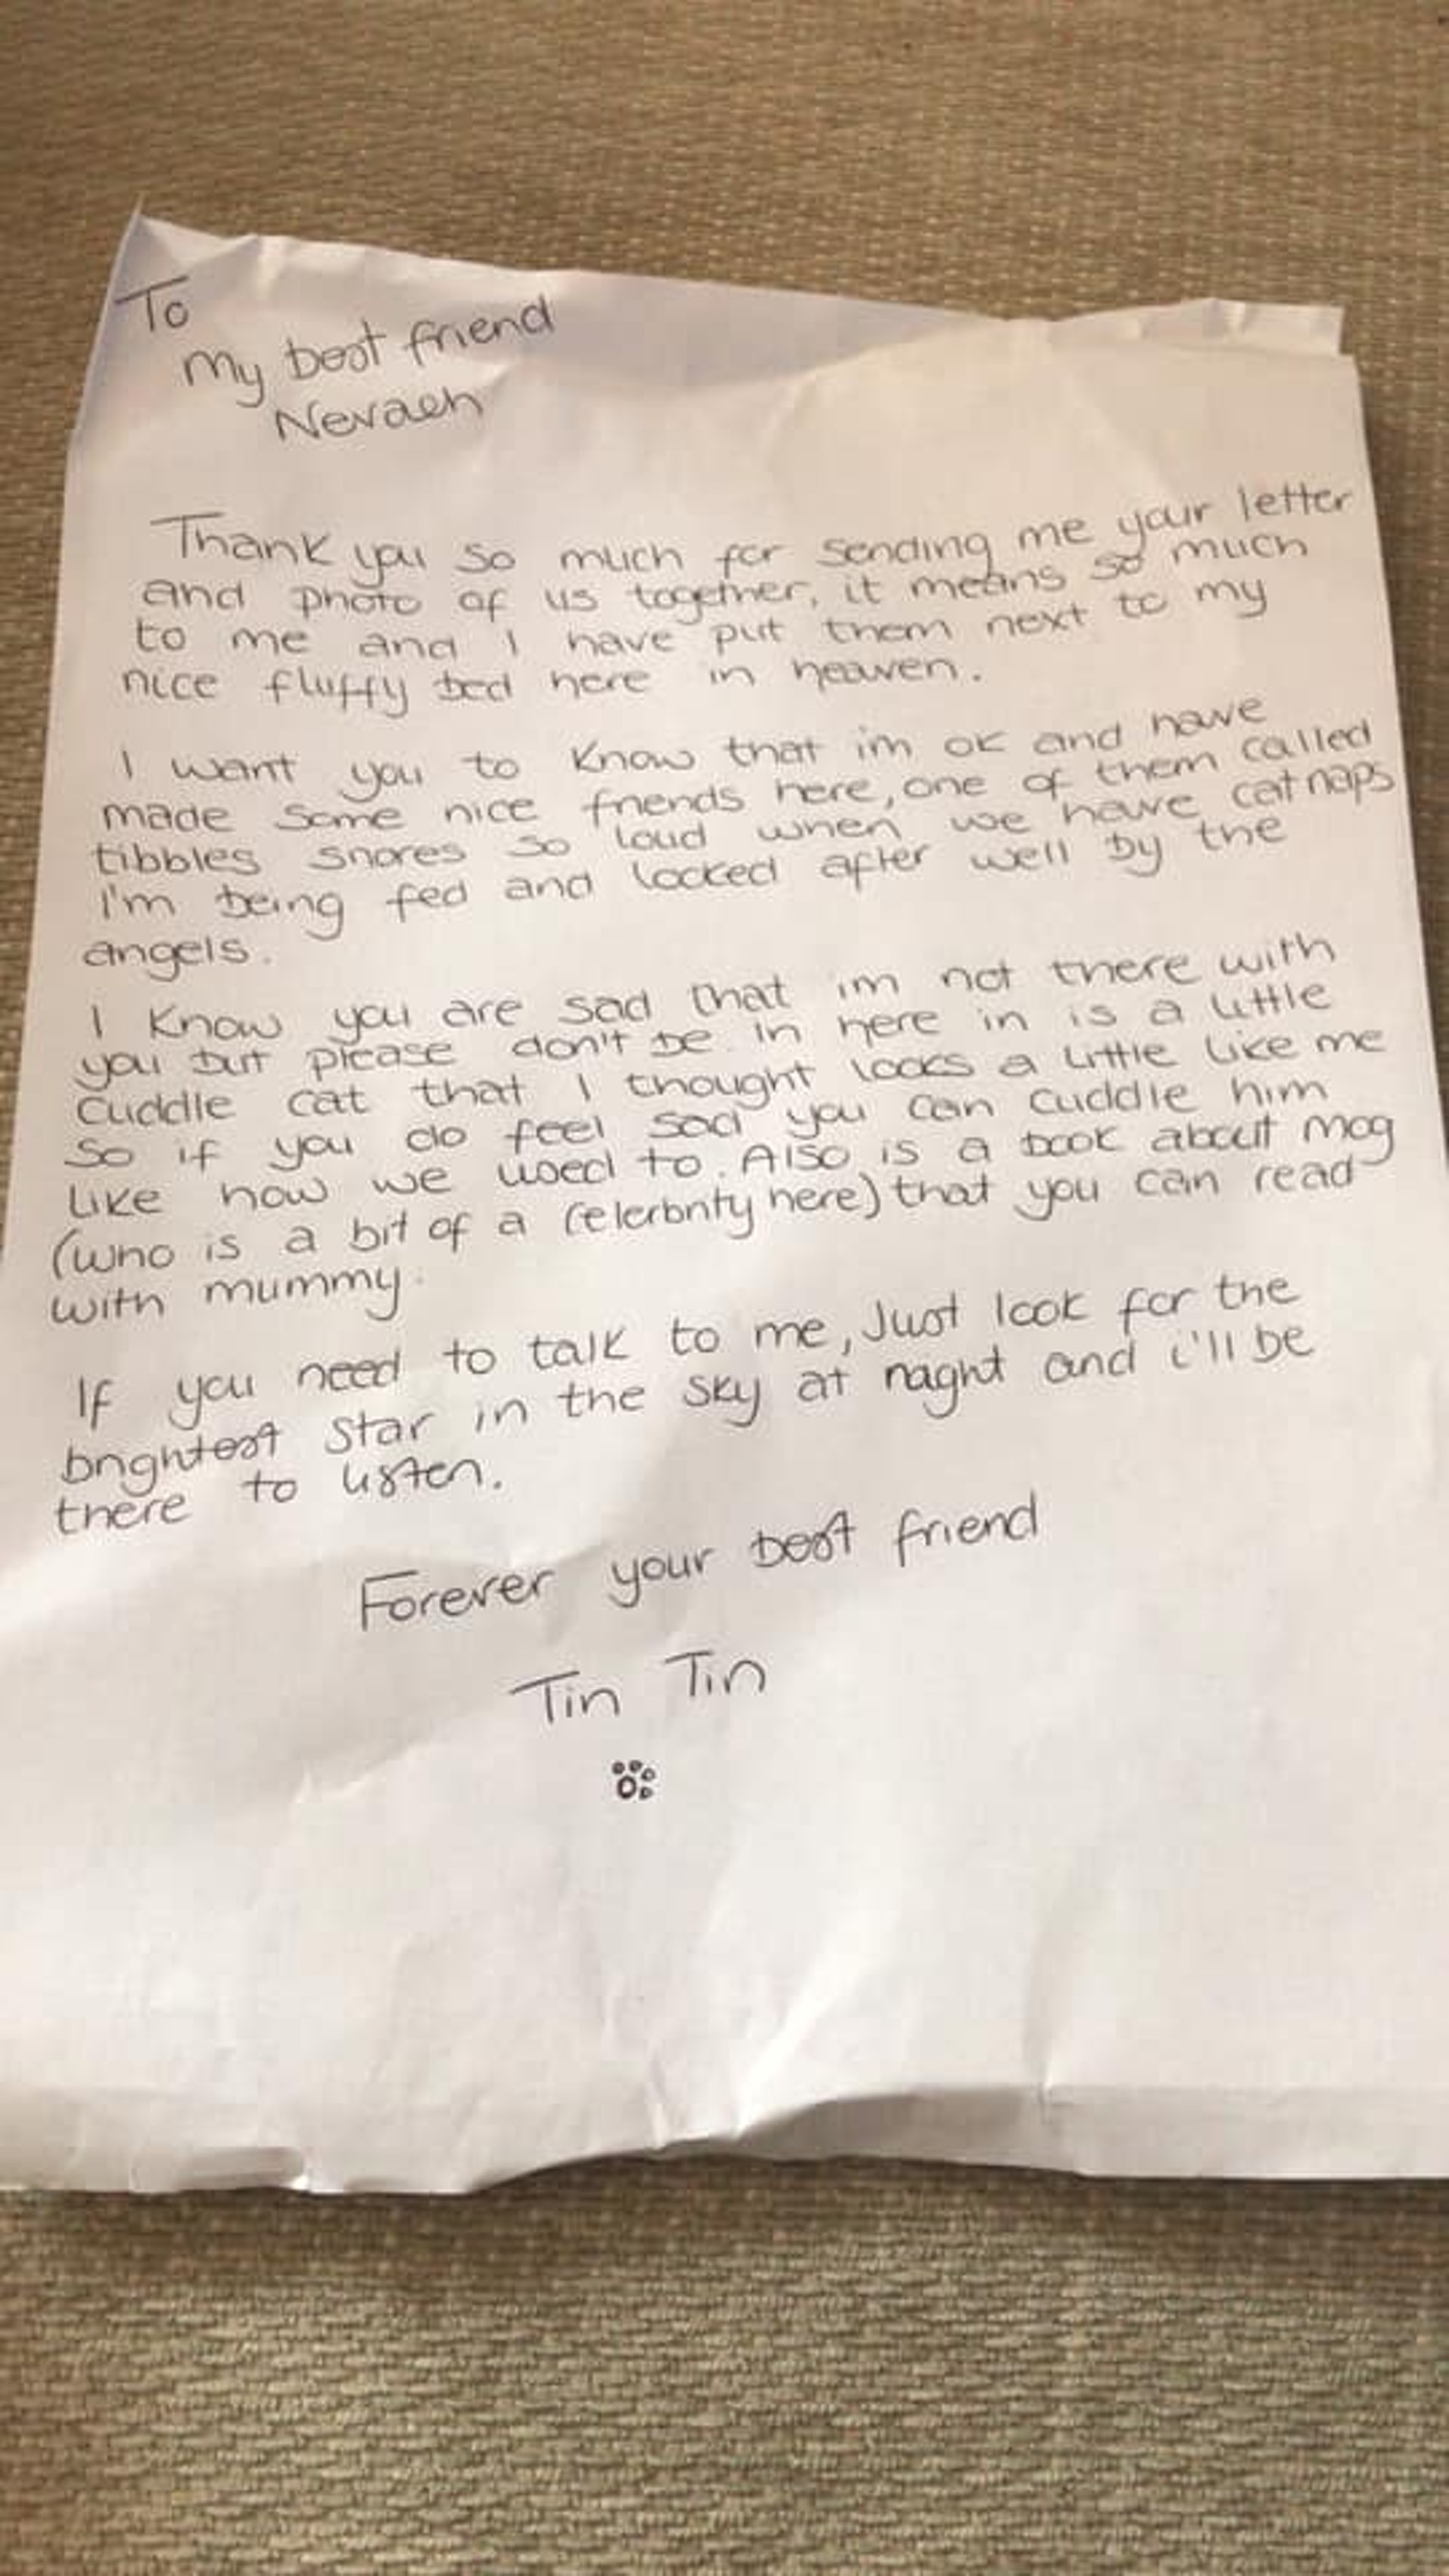 To
My best friend
Nevaeh
Thank you so much for sending me your letter
and photo of us together, it means so much
to me and I have put them next to my
nice fluffy bed here in heaven.
I want you to know that im ok and have
made some nice friends here, one of them called
tibbles snores so loud when we have catnaps
I'm being fed and looked after well by the
angels.
I know you are sad that im not there with
you but please don't be. In here in is a little
cuddle cat that I thought looks a little like me
so if you do feel sad you can cuddle him
like how we used to. Also is a book about mog
(who is a bit of a celerbrity here) that you can read
with mummy.
If you need to talk to me, Just look for the
brightest star in the sky at naght and i'll be
there to listen.
Forever your best friend
Tin Tin